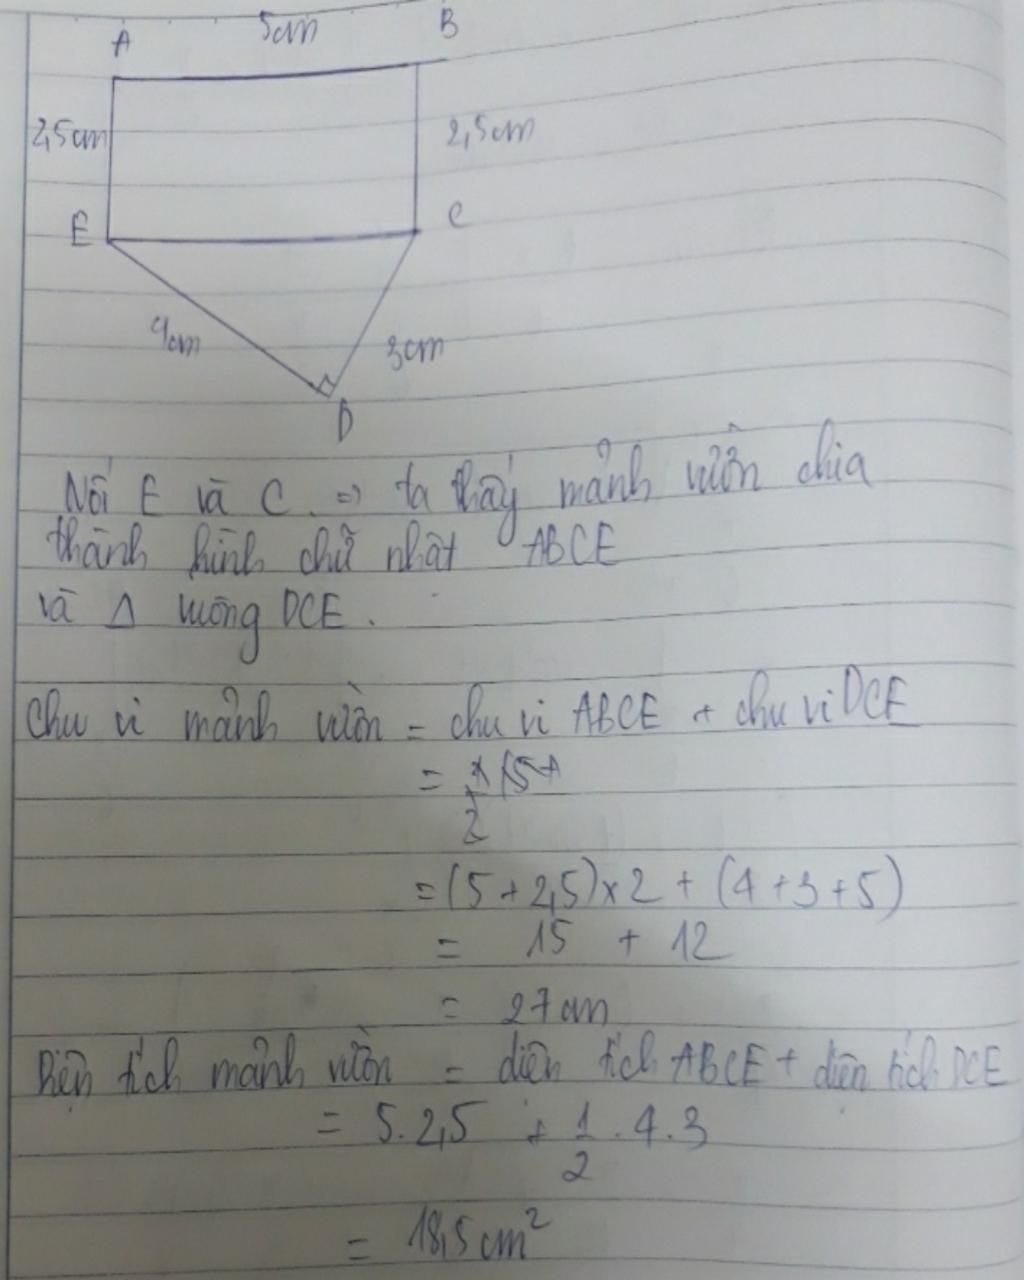 A 5cm B
2,5cm 2,5cm
E C
4cm 3cm
D
Nối E và C. => ta thấy mảnh vườn chia
thành hình chữ nhật ABCE
và Δ vuông DCE.
Chu vi mảnh vườn = chu vi ABCE + chu vi DCE
= 1/2 (5+
= (5 + 2,5) x 2 + (4 + 3 + 5)
= 15 + 12
= 27 cm
Diện tích mảnh vườn = diện tích ABCE + diện tích DCE
= 5. 2,5 + 1/2 . 4. 3
= 18,5 cm²